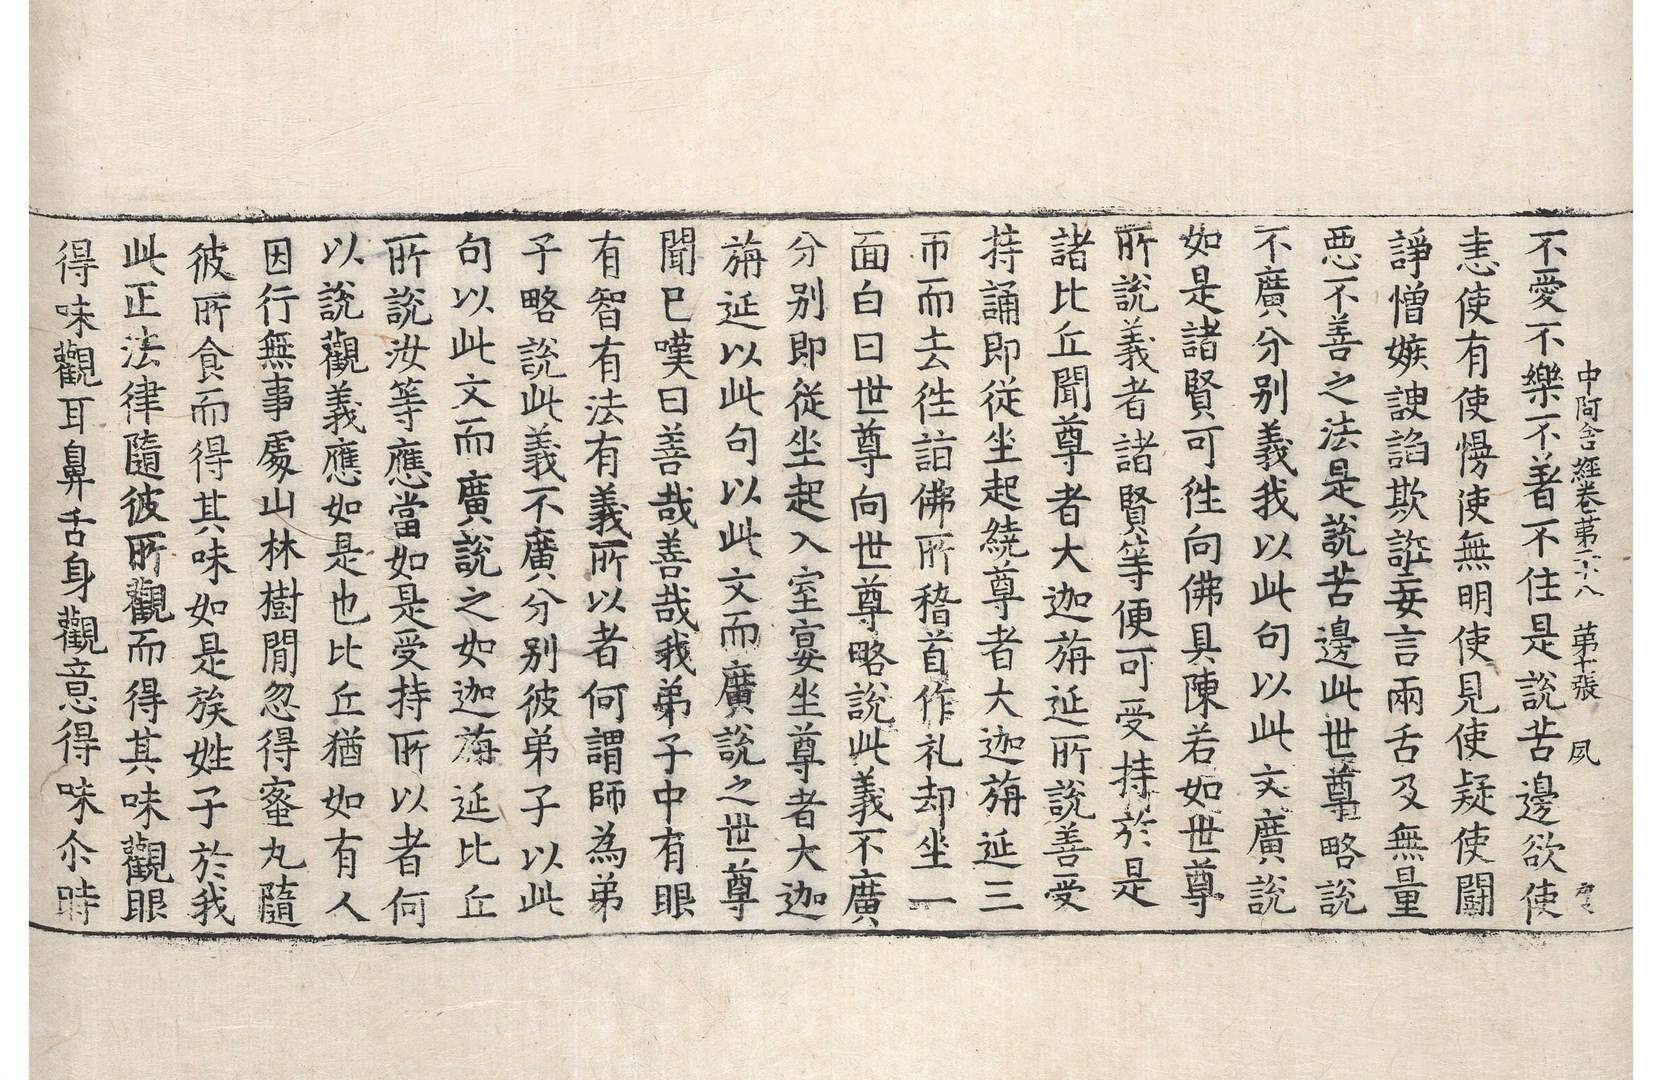 中阿含經卷第二十八　第十張　夙
不愛不樂不著不住是說苦邊欲使
恚使有使慢使無明使見使疑使鬪
諍憎嫉諛諂欺誑妄言兩舌及無量
惡不善之法是說苦邊此世尊略說
不廣分別義我以此句以此文廣說
如是諸賢可徃向佛具陳若如世尊
所說義者諸賢等便可受持於是
諸比丘聞尊者大迦旃延所說善受
持誦即從坐起繞尊者大迦旃延三
帀而去徃詣佛所稽首作礼却坐一
面白曰世尊向世尊略說此義不廣
分別即從坐起入室宴坐尊者大迦
旃延以此句以此文而廣說之世尊
聞已嘆曰善哉善哉我弟子中有眼
有智有法有義所以者何謂師為弟
子略說此義不廣分別彼弟子以此
句以此文而廣說之如迦旃延比丘
所說汝等應當如是受持所以者何
以說觀義應如是也比丘猶如有人
因行無事處山林樹閒忽得蜜丸隨
彼所食而得其味如是族姓子於我
此正法律隨彼所觀而得其味觀眼
得味觀耳鼻舌身觀意得味尒時